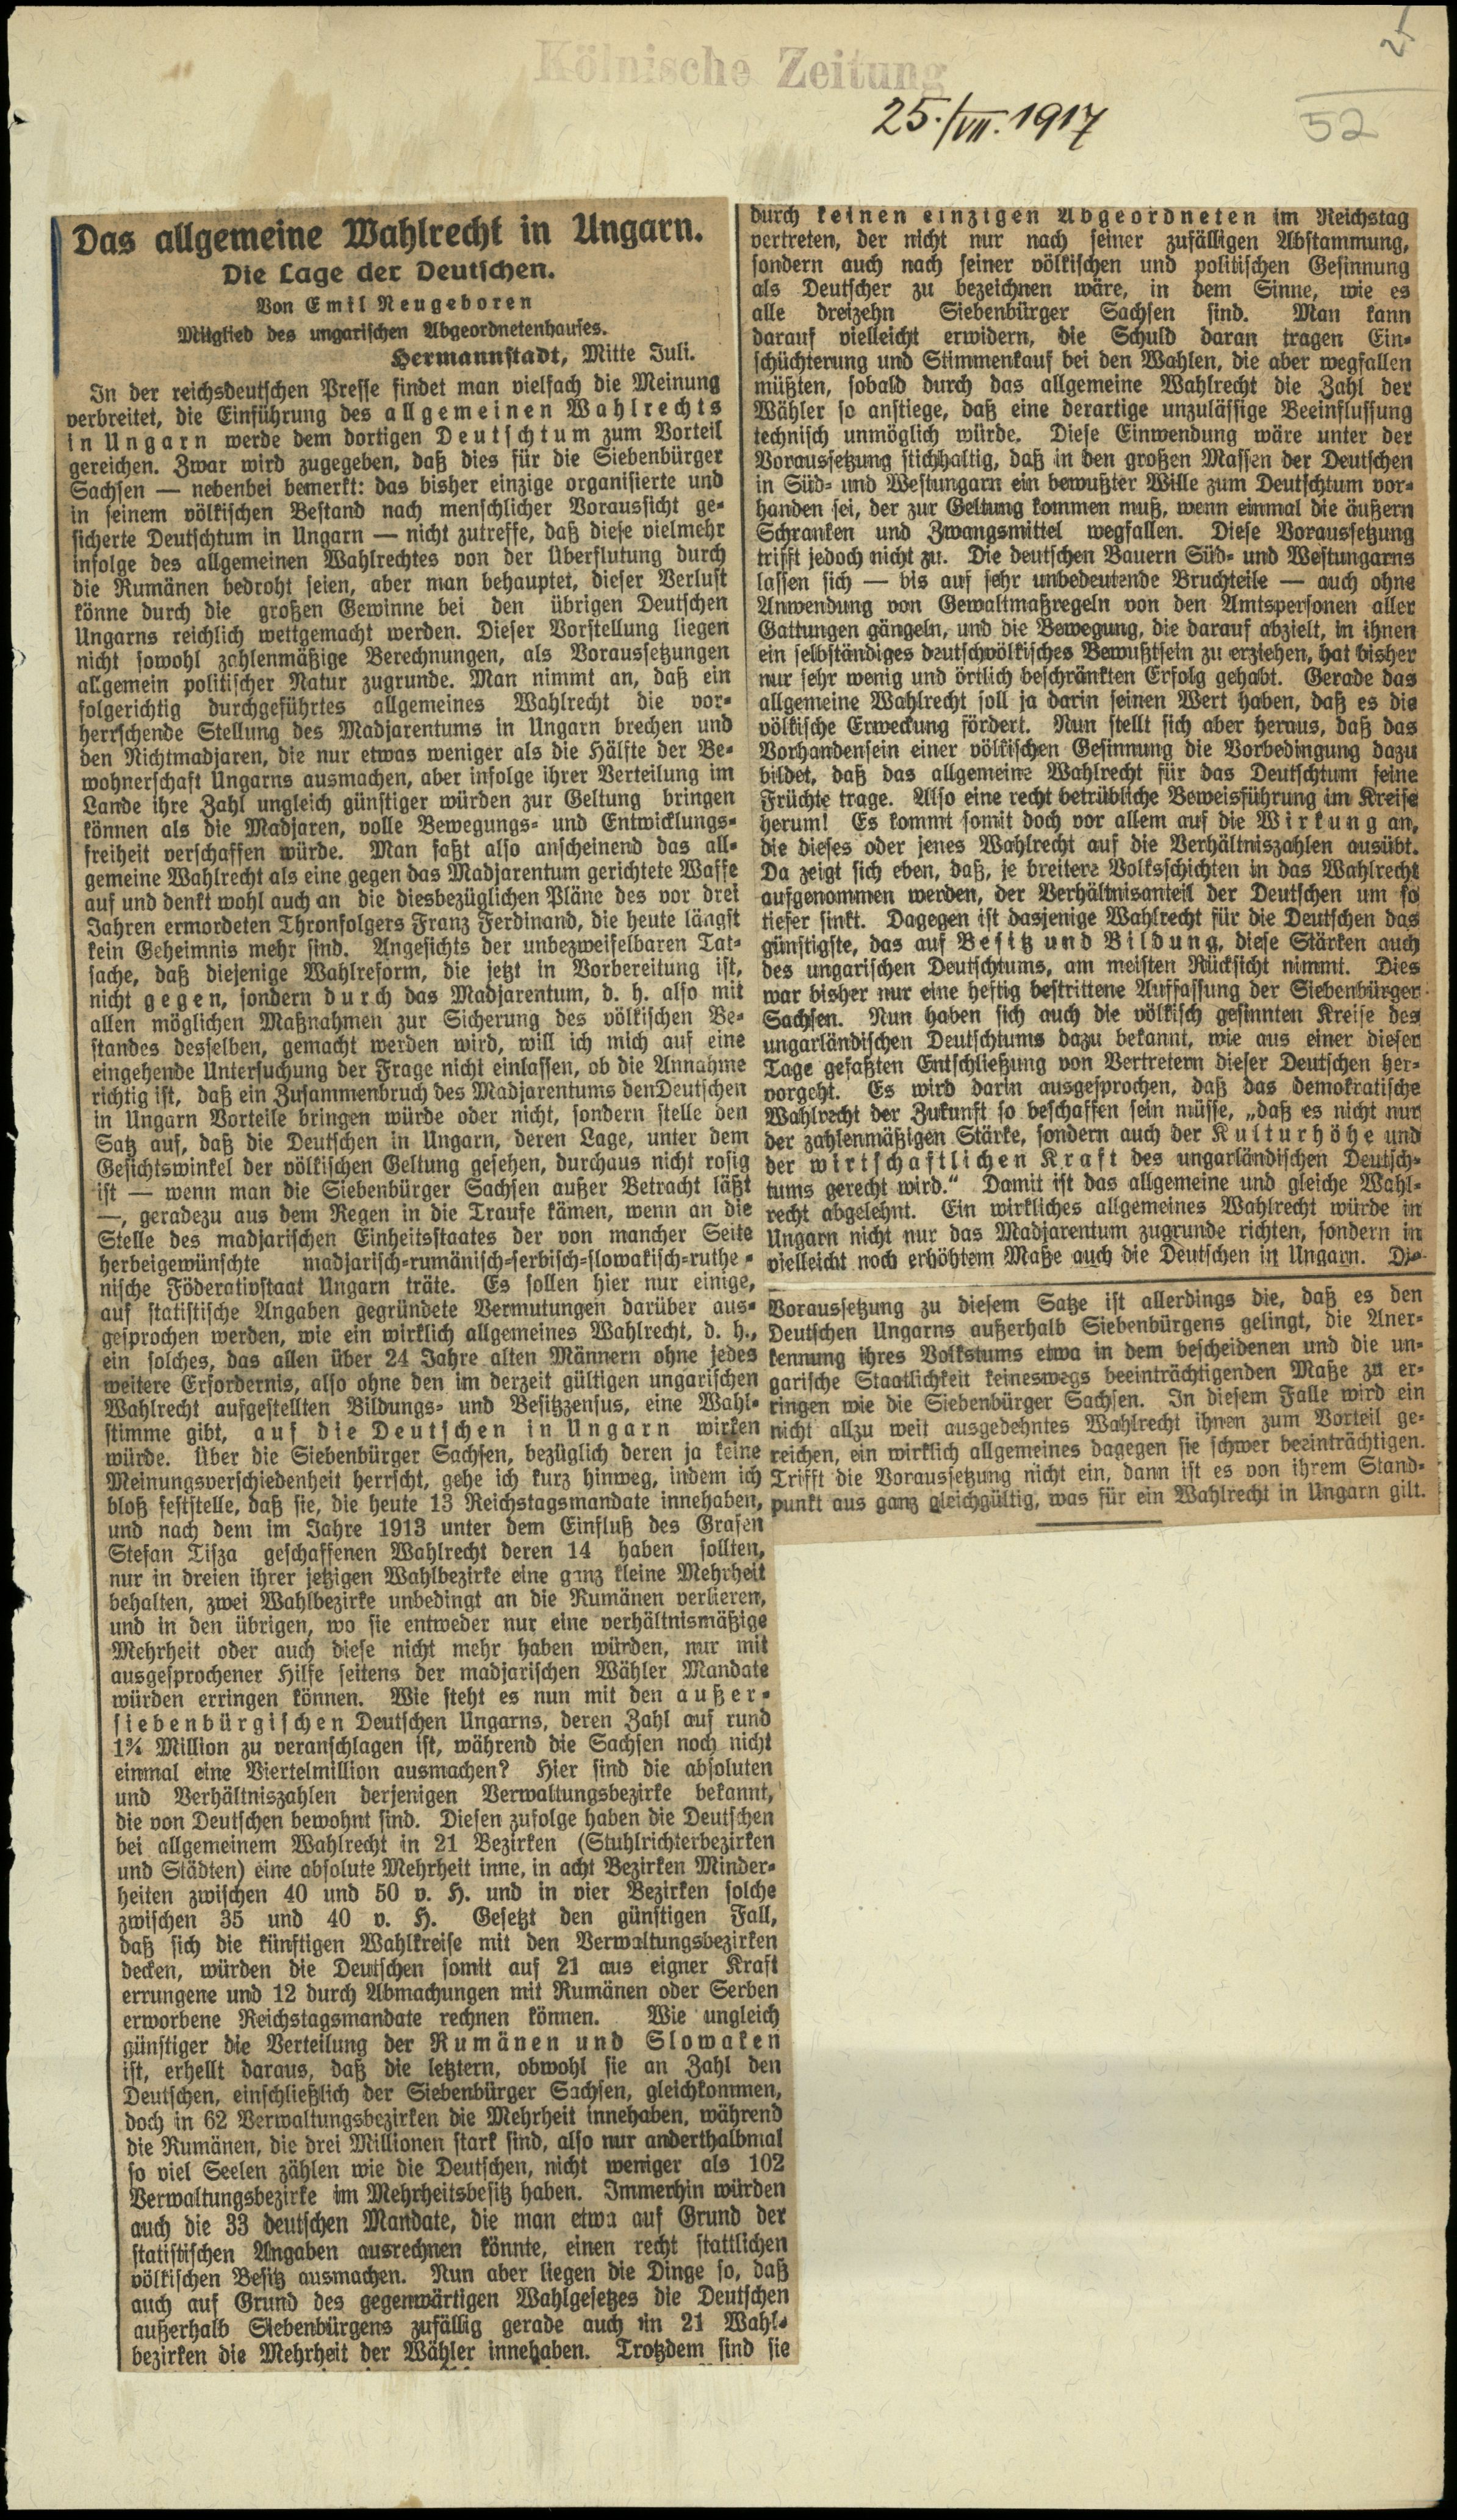 Kölnische Zeitung
25./VII. 1917
52
Das allgemeine Wahlrecht in Ungarn.
Die Lage der Deutschen.
Von Emil Neugeboren
Mitglied des ungarischen Abgeordnetenhauses.
Hermannstadt, Mitte Juli.
In der reichsdeutschen Presse findet man vielfach die Meinung
verbreitet, die Einführung des allgemeinen Wahlrechts
in Ungarn werde dem dortigen Deutschtum zum Vorteil
gereichen. Zwar wird zugegeben, daß dies für die Siebenbürger
Sachsen — nebenbei bemerkt: das bisher einzige organisierte und
in seinem völkischen Bestand nach menschlicher Voraussicht ge-
sicherte Deutschtum in Ungarn — nicht zutreffe, daß diese vielmehr
infolge des allgemeinen Wahlrechtes von der Überflutung durch
die Rumänen bedroht seien, aber man behauptet, dieser Verlust
könne durch die großen Gewinne bei den übrigen Deutschen
Ungarns reichlich wettgemacht werden. Dieser Vorstellung liegen
nicht sowohl zahlenmäßige Berechnungen, als Voraussetzungen
allgemein politischer Natur zugrunde. Man nimmt an, daß ein
folgerichtig durchgeführtes allgemeines Wahlrecht die vor-
herrschende Stellung des Madjarentums in Ungarn brechen und
den Nichtmadjaren, die nur etwas weniger als die Hälfte der Be-
wohnerschaft Ungarns ausmachen, aber infolge ihrer Verteilung im
Lande ihre Zahl ungleich günstiger würden zur Geltung bringen
können als die Madjaren, volle Bewegungs- und Entwicklungs-
freiheit verschaffen würde. Man faßt also anscheinend das all-
gemeine Wahlrecht als eine gegen das Madjarentum gerichtete Waffe
auf und denkt wohl auch an die diesbezüglichen Pläne des vor drei
Jahren ermordeten Thronfolgers Franz Ferdinand, die heute längst
kein Geheimnis mehr sind. Angesichts der unbezweifelbaren Tat-
sache, daß diejenige Wahlreform, die jetzt in Vorbereitung ist,
nicht gegen, sondern durch das Madjarentum, d. h. also mit
allen möglichen Maßnahmen zur Sicherung des völkischen Be-
standes desselben, gemacht werden wird, will ich mich auf eine
eingehende Untersuchung der Frage nicht einlassen, ob die Annahme
richtig ist, daß ein Zusammenbruch des Madjarentums den Deutschen
in Ungarn Vorteile bringen würde oder nicht, sondern stelle den
Satz auf, daß die Deutschen in Ungarn, deren Lage, unter dem
Gesichtswinkel der völkischen Geltung gesehen, durchaus nicht rosig
ist — wenn man die Siebenbürger Sachsen außer Betracht läßt
—, geradezu aus dem Regen in die Traufe kämen, wenn an die
Stelle des madjarischen Einheitsstaates der von mancher Seite
herbeigewünschte madjarisch-rumänisch-serbisch-slowakisch-ruthe-
nische Föderativstaat Ungarn träte. Es sollen hier nur einige,
auf statistische Angaben gegründete Vermutungen darüber aus-
gesprochen werden, wie ein wirklich allgemeines Wahlrecht, d. h.,
ein solches, das allen über 24 Jahre alten Männern ohne jedes
weitere Erfordernis, also ohne den im derzeit gültigen ungarischen
Wahlrecht aufgestellten Bildungs- und Besitzzensus, eine Wahl-
stimme gibt, auf die Deutschen in Ungarn wirken
würde. Über die Siebenbürger Sachsen, bezüglich deren ja keine
Meinungsverschiedenheit herrscht, gehe ich kurz hinweg, indem ich
bloß feststelle, daß sie, die heute 13 Reichstagsmandate innehaben,
und nach dem im Jahre 1913 unter dem Einfluß des Grafen
Stefan Tisza geschaffenen Wahlrecht deren 14 haben sollten,
nur in dreien ihrer jetzigen Wahlbezirke eine ganz kleine Mehrheit
behalten, zwei Wahlbezirke unbedingt an die Rumänen verlieren,
und in den übrigen, wo sie entweder nur eine verhältnismäßige
Mehrheit oder auch diese nicht mehr haben würden, nur mit
ausgesprochener Hilfe seitens der madjarischen Wähler Mandate
würden erringen können. Wie steht es nun mit den außer-
siebenbürgischen Deutschen Ungarns, deren Zahl auf rund
1¾ Million zu veranschlagen ist, während die Sachsen noch nicht
einmal eine Viertelmillion ausmachen? Hier sind die absoluten
und Verhältniszahlen derjenigen Verwaltungsbezirke bekannt,
die von Deutschen bewohnt sind. Diesen zufolge haben die Deutschen
bei allgemeinem Wahlrecht in 21 Bezirken (Stuhlrichterbezirken
und Städten) eine absolute Mehrheit inne, in acht Bezirken Minder-
heiten zwischen 40 und 50 v. H. und in vier Bezirken solche
zwischen 35 und 40 v. H. Gesetzt den günstigen Fall,
daß sich die künftigen Wahlkreise mit den Verwaltungsbezirken
decken, würden die Deutschen somit auf 21 aus eigner Kraft
errungene und 12 durch Abmachungen mit Rumänen oder Serben
erworbene Reichstagsmandate rechnen können. Wie ungleich
günstiger die Verteilung der Rumänen und Slowaken
ist, erhellt daraus, daß die letztern, obwohl sie an Zahl den
Deutschen, einschließlich der Siebenbürger Sachsen, gleichkommen,
doch in 62 Verwaltungsbezirken die Mehrheit innehaben, während
die Rumänen, die drei Millionen stark sind, also nur anderthalbmal
so viel Seelen zählen wie die Deutschen, nicht weniger als 102
Verwaltungsbezirke im Mehrheitsbesitz haben. Immerhin würden
auch die 33 deutschen Mandate, die man etwa auf Grund der
statistischen Angaben ausrechnen könnte, einen recht stattlichen
völkischen Besitz ausmachen. Nun aber liegen die Dinge so, daß
auch auf Grund des gegenwärtigen Wahlgesetzes die Deutschen
außerhalb Siebenbürgens zufällig gerade auch in 21 Wahl-
bezirken die Mehrheit der Wähler innehaben. Trotzdem sind sie
durch keinen einzigen Abgeordneten im Reichstag
vertreten, der nicht nur nach seiner zufälligen Abstammung,
sondern auch nach seiner völkischen und politischen Gesinnung
als Deutscher zu bezeichnen wäre, in dem Sinne, wie es
alle dreizehn Siebenbürger Sachsen sind. Man kann
darauf vielleicht erwidern, die Schuld daran tragen Ein-
schüchterung und Stimmenkauf bei den Wahlen, die aber wegfallen
müßten, sobald durch das allgemeine Wahlrecht die Zahl der
Wähler so anstiege, daß eine derartige unzulässige Beeinflussung
technisch unmöglich würde. Diese Einwendung wäre unter der
Voraussetzung stichhaltig, daß in den großen Massen der Deutschen
in Süd- und Westungarn ein bewußter Wille zum Deutschtum vor-
handen sei, der zur Geltung kommen muß, wenn einmal die äußern
Schranken und Zwangsmittel wegfallen. Diese Voraussetzung
trifft jedoch nicht zu. Die deutschen Bauern Süd- und Westungarns
lassen sich — bis auf sehr unbedeutende Bruchteile — auch ohne
Anwendung von Gewaltmaßregeln von den Amtspersonen aller
Gattungen gängeln, und die Bewegung, die darauf abzielt, in ihnen
ein selbständiges deutschvölkisches Bewußtsein zu erziehen, hat bisher
nur sehr wenig und örtlich beschränkten Erfolg gehabt. Gerade das
allgemeine Wahlrecht soll ja darin seinen Wert haben, daß es die
völkische Erweckung fördert. Nun stellt sich aber heraus, daß das
Vorhandensein einer völkischen Gesinnung die Vorbedingung dazu
bildet, daß das allgemeine Wahlrecht für das Deutschtum seine
Früchte trage. Also eine recht betrübliche Beweisführung im Kreise
herum! Es kommt somit doch vor allem auf die Wirkung an,
die dieses oder jenes Wahlrecht auf die Verhältniszahlen ausübt.
Da zeigt sich eben, daß, je breitere Volksschichten in das Wahlrecht
aufgenommen werden, der Verhältnisanteil der Deutschen um so
tiefer sinkt. Dagegen ist dasjenige Wahlrecht für die Deutschen das
günstigste, das auf Besitz und Bildung, diese Stärken auch
des ungarischen Deutschtums, am meisten Rücksicht nimmt. Dies
war bisher nur eine heftig bestrittene Auffassung der Siebenbürger
Sachsen. Nun haben sich auch die völkisch gesinnten Kreise des
ungarländischen Deutschtums dazu bekannt, wie aus einer dieser
Tage gefaßten Entschließung von Vertretern dieser Deutschen her-
vorgeht. Es wird darin ausgesprochen, daß das demokratische
Wahlrecht der Zukunft so beschaffen sein müsse, „daß es nicht nur
der zahlenmäßigen Stärke, sondern auch der Kulturhöhe und
der wirtschaftlichen Kraft des ungarländischen Deutsch-
tums gerecht wird.“ Damit ist das allgemeine und gleiche Wahl-
recht abgelehnt. Ein wirkliches allgemeines Wahlrecht würde in
Ungarn nicht nur das Madjarentum zugrunde richten, sondern in
vielleicht noch erhöhtem Maße auch die Deutschen in Ungarn. Die
Voraussetzung zu diesem Satze ist allerdings die, daß es den
Deutschen Ungarns außerhalb Siebenbürgens gelingt, die Aner-
kennung ihres Volkstums etwa in dem bescheidenen und die un-
garische Staatlichkeit keineswegs beeinträchtigenden Maße zu er-
ringen wie die Siebenbürger Sachsen. In diesem Falle wird ein
nicht allzu weit ausgedehntes Wahlrecht ihnen zum Vorteil ge-
reichen, ein wirklich allgemeines dagegen sie schwer beeinträchtigen.
Trifft die Voraussetzung nicht ein, dann ist es von ihrem Stand-
punkt aus ganz gleichgültig, was für ein Wahlrecht in Ungarn gilt.